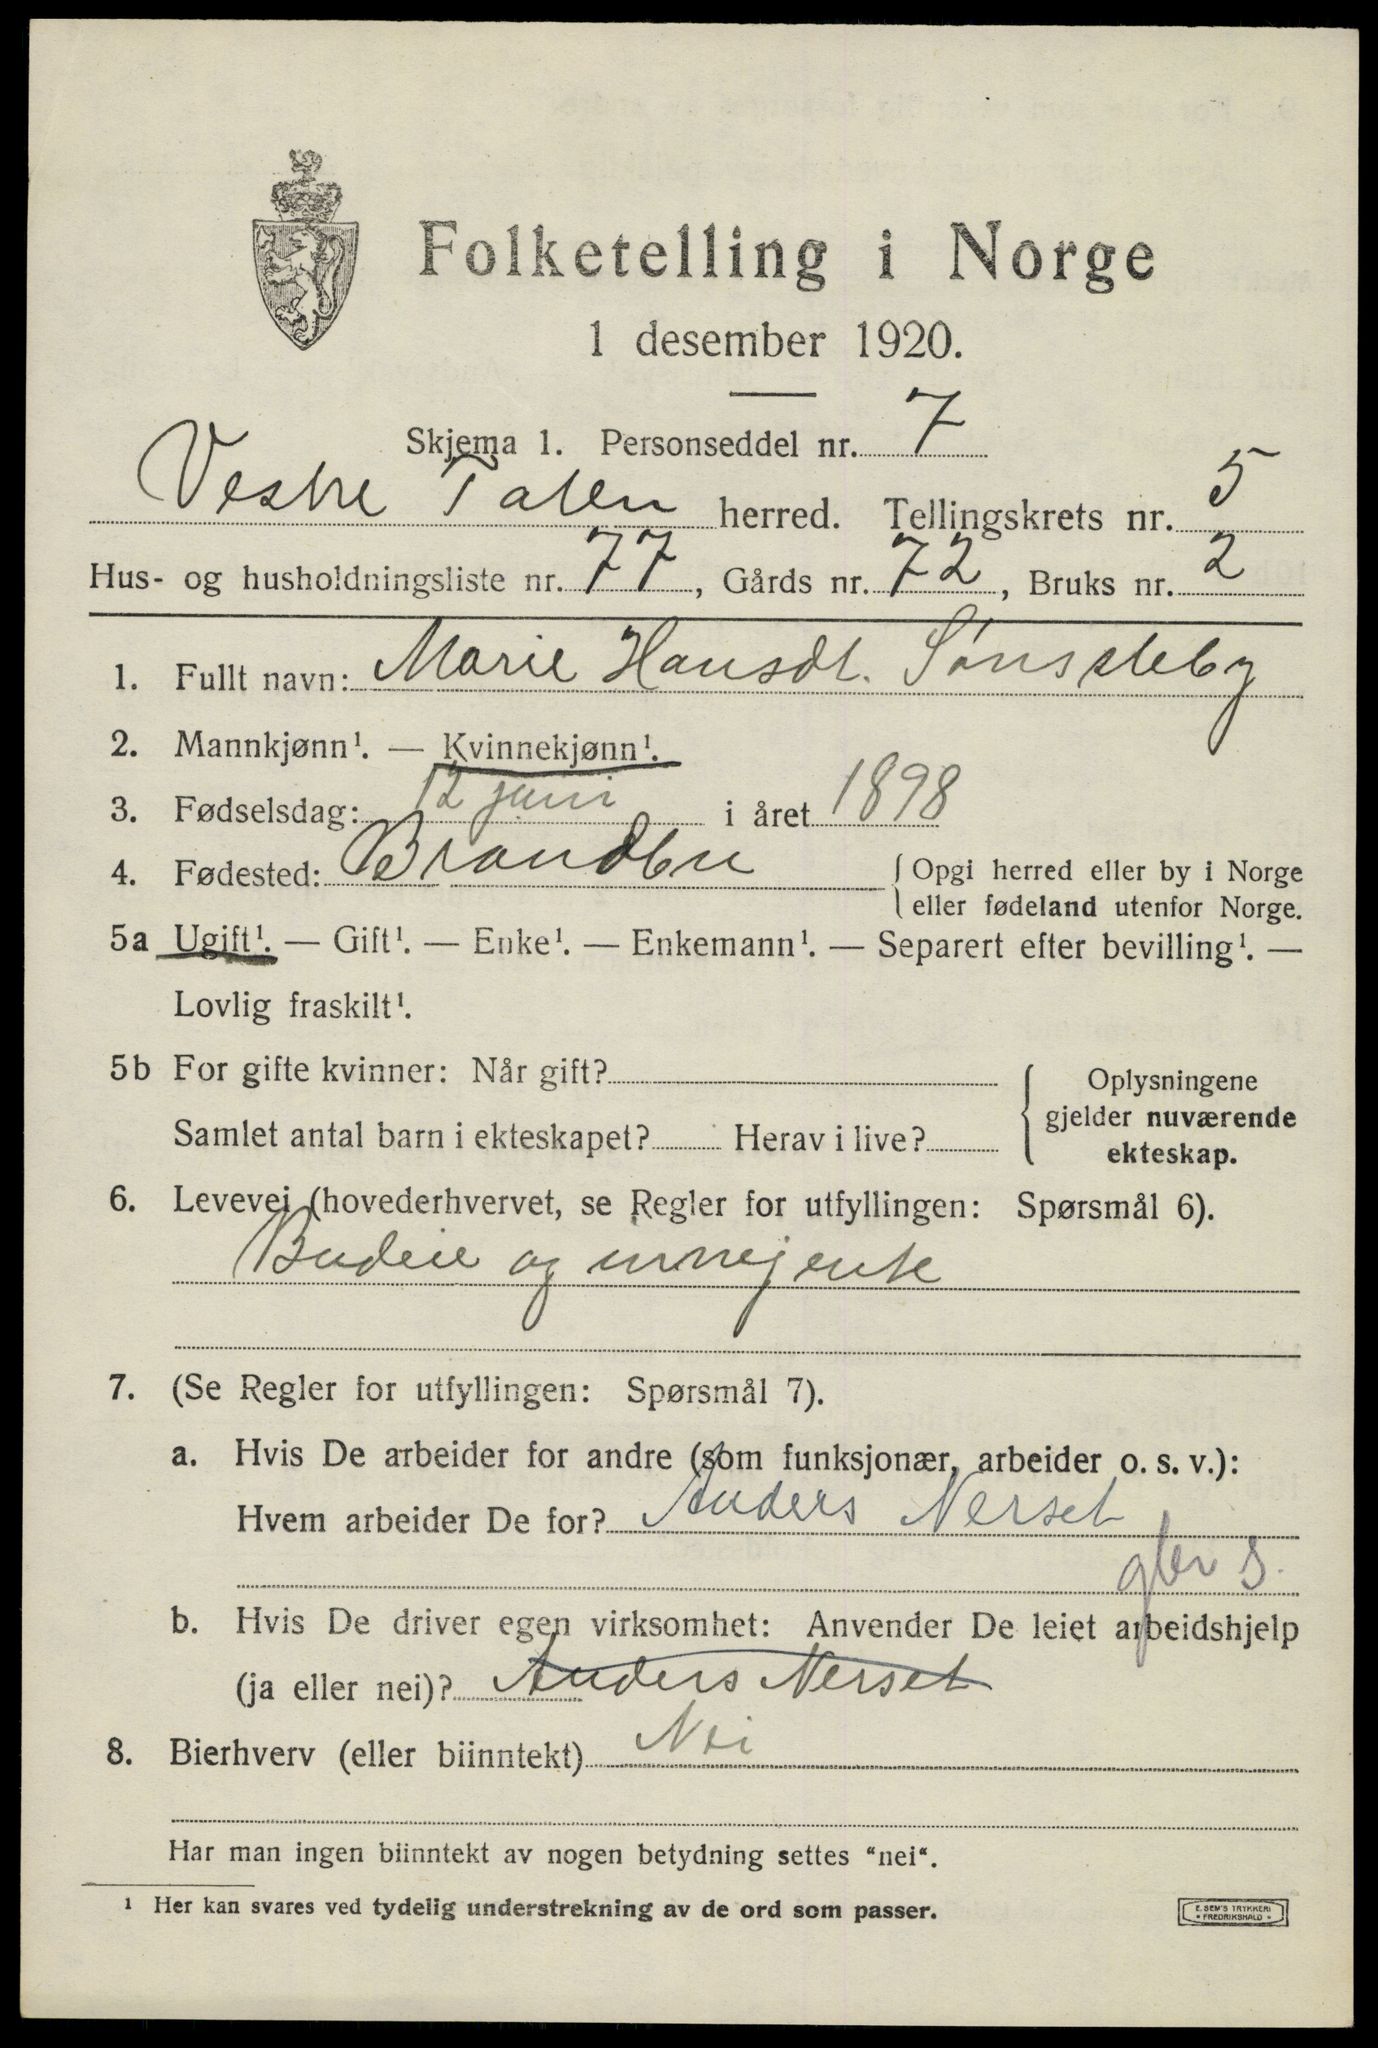 Folketelling i Norge
1 desember 1920.
Skjema 1. Personseddel nr. 7
Vestre Toten herred. Tellingskrets nr. 5
Hus- og husholdningsliste nr. 77, Gårds nr. 72, Bruks nr. 2
1. Fullt navn: Marie Hansdt. Sønsteby
2. Mannkjønn¹. — Kvinnekjønn¹.
3. Fødselsdag: 12 juni i året 1898
4. Fødested: Brandbu { Opgi herred eller by i Norge
eller fødeland utenfor Norge.
5a Ugift¹. — Gift¹. — Enke¹. — Enkemann¹. — Separert efter bevilling¹. —
Lovlig fraskilt¹.
5b For gifte kvinner: Når gift?
Samlet antal barn i ekteskapet? Herav i live?
{ Oplysningene
gjelder nuværende
ekteskap.
6. Levevei (hovederhvervet, se Regler for utfyllingen: Spørsmål 6).
Budeie og innejente
7. (Se Regler for utfyllingen: Spørsmål 7).
a. Hvis De arbeider for andre (som funksjonær, arbeider o. s. v.):
Hvem arbeider De for? Anders Nerset
gbr s.
b. Hvis De driver egen virksomhet: Anvender De leiet arbeidshjelp
(ja eller nei)? Anders Nerset
8. Bierhverv (eller biinntekt) Nei
Har man ingen biinntekt av nogen betydning settes "nei".
¹ Her kan svares ved tydelig understrekning av de ord som passer.
E. SEM'S TRYKKERI
• FREDRIKSHALD •